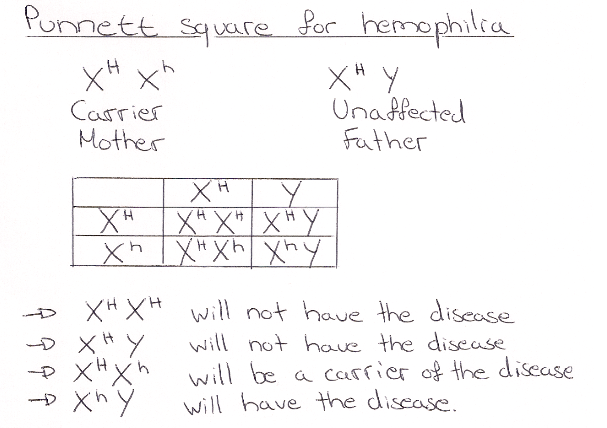 Punnett square for hemophilia
X^H X^h X^H Y
Carrier Unaffected
Mother Father
X^H Y
X^H X^H X^H X^H Y
X^h X^H X^h X^h Y
→ X^H X^H will not have the disease
→ X^H Y will not have the disease
→ X^H X^h will be a carrier of the disease
→ X^h Y will have the disease.